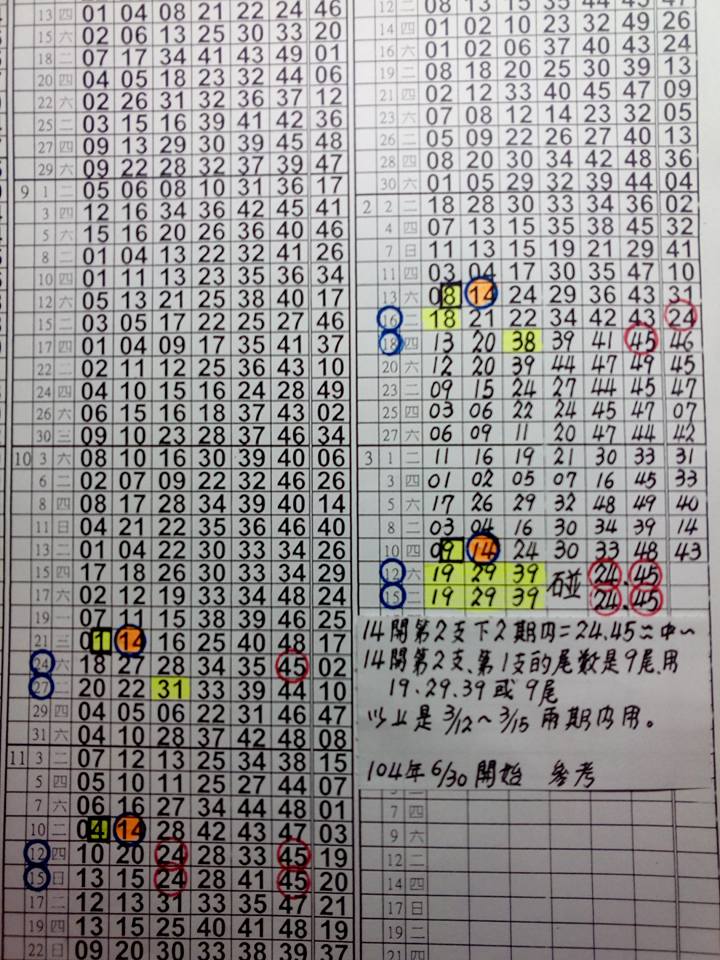 13 四 01 04 08 21 22 24 46
15 六 02 06 13 25 30 33 20
18 二 07 17 34 41 43 49 01
20 四 04 05 18 23 32 44 06
22 六 02 26 31 32 36 37 12
25 二 03 15 16 39 41 42 36
27 四 09 13 29 30 39 45 48
29 六 09 22 28 32 37 39 47
9 1 二 05 06 08 10 31 36 17
3 四 12 16 34 36 42 45 41
5 六 15 16 20 26 36 40 46
8 二 01 04 13 22 32 41 26
10 四 01 11 13 23 35 36 34
12 六 05 13 21 25 38 40 17
15 二 03 05 17 22 25 27 46
17 四 01 04 09 17 35 41 37
22 二 02 11 12 25 36 43 10
24 四 04 10 15 16 24 28 49
26 六 06 15 16 18 37 43 02
30 三 09 10 23 28 37 46 34
10 3 六 08 10 16 30 39 40 06
6 二 02 07 09 22 32 46 26
8 四 08 17 28 34 39 40 14
11 日 04 21 22 35 36 46 40
13 二 01 04 22 30 33 34 26
15 四 17 18 26 30 33 34 29
17 六 02 12 19 33 34 48 24
19 一 07 11 15 38 39 46 25
21 三 01 14 16 25 40 48 17
24 六 18 27 28 34 35 45 02
27 二 20 22 31 33 39 44 10
29 四 04 05 06 22 31 46 47
31 六 04 10 28 37 42 48 08
11 3 二 07 12 13 25 34 38 15
5 四 05 10 11 25 27 44 07
7 六 06 16 27 34 44 48 01
10 二 04 14 28 42 43 47 03
12 四 10 20 24 28 33 45 19
15 日 13 15 24 28 41 45 20
17 二 12 13 31 33 35 47 21
19 四 13 15 25 40 41 48 19
22 日 09 20 30 33 38 39 37
12 二 08 13 15 35 44
14 四 01 02 10 23 32 49 26
16 六 01 02 06 37 40 43 24
19 二 08 18 20 25 30 39 13
21 四 02 12 33 40 45 47 09
23 六 07 08 12 14 23 32 05
26 二 05 09 22 26 27 40 13
28 四 08 20 30 34 42 48 36
30 六 01 05 29 32 39 44 04
2 2 二 18 28 30 33 34 36 02
4 四 07 13 15 35 38 45 32
7 日 11 13 15 19 21 29 41
11 四 03 04 17 30 35 47 10
13 六 08 14 24 29 36 43 31
16 二 18 21 22 34 42 43 24
18 四 13 20 38 39 41 45 46
20 六 12 20 39 44 47 49 45
23 二 09 15 24 27 44 45 47
25 四 03 06 22 24 45 47 07
27 六 06 09 11 20 47 44 42
3 1 二 11 16 19 21 30 33 31
3 四 01 02 05 07 16 45 33
5 六 17 26 29 32 48 49 40
8 二 03 04 16 30 34 39 14
10 四 09 14 24 30 33 48 43
12 六 19 29 39 碰 24.45
15 二 19 29 39 24.45
14開第2支下2期內=24.45二中一
14開第2支、第1支的尾數是9尾、用
19.29.39或9尾
以上是3/12~3/15兩期內用。
104年6/30開始 參考
7 四
9 六
12 二
14 四
17 日
19 二
21 四